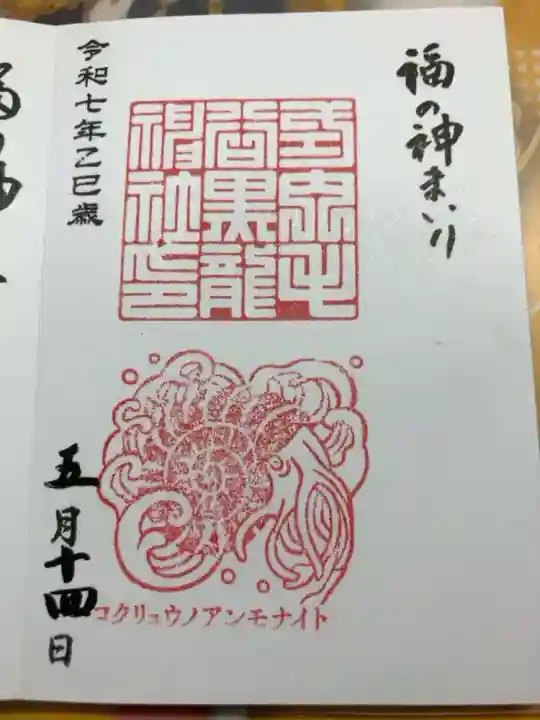 福の神まいり
毛
谷黒龍
神社印
コクリュウノアンモナイト
令和七年乙巳歳
五月十四日